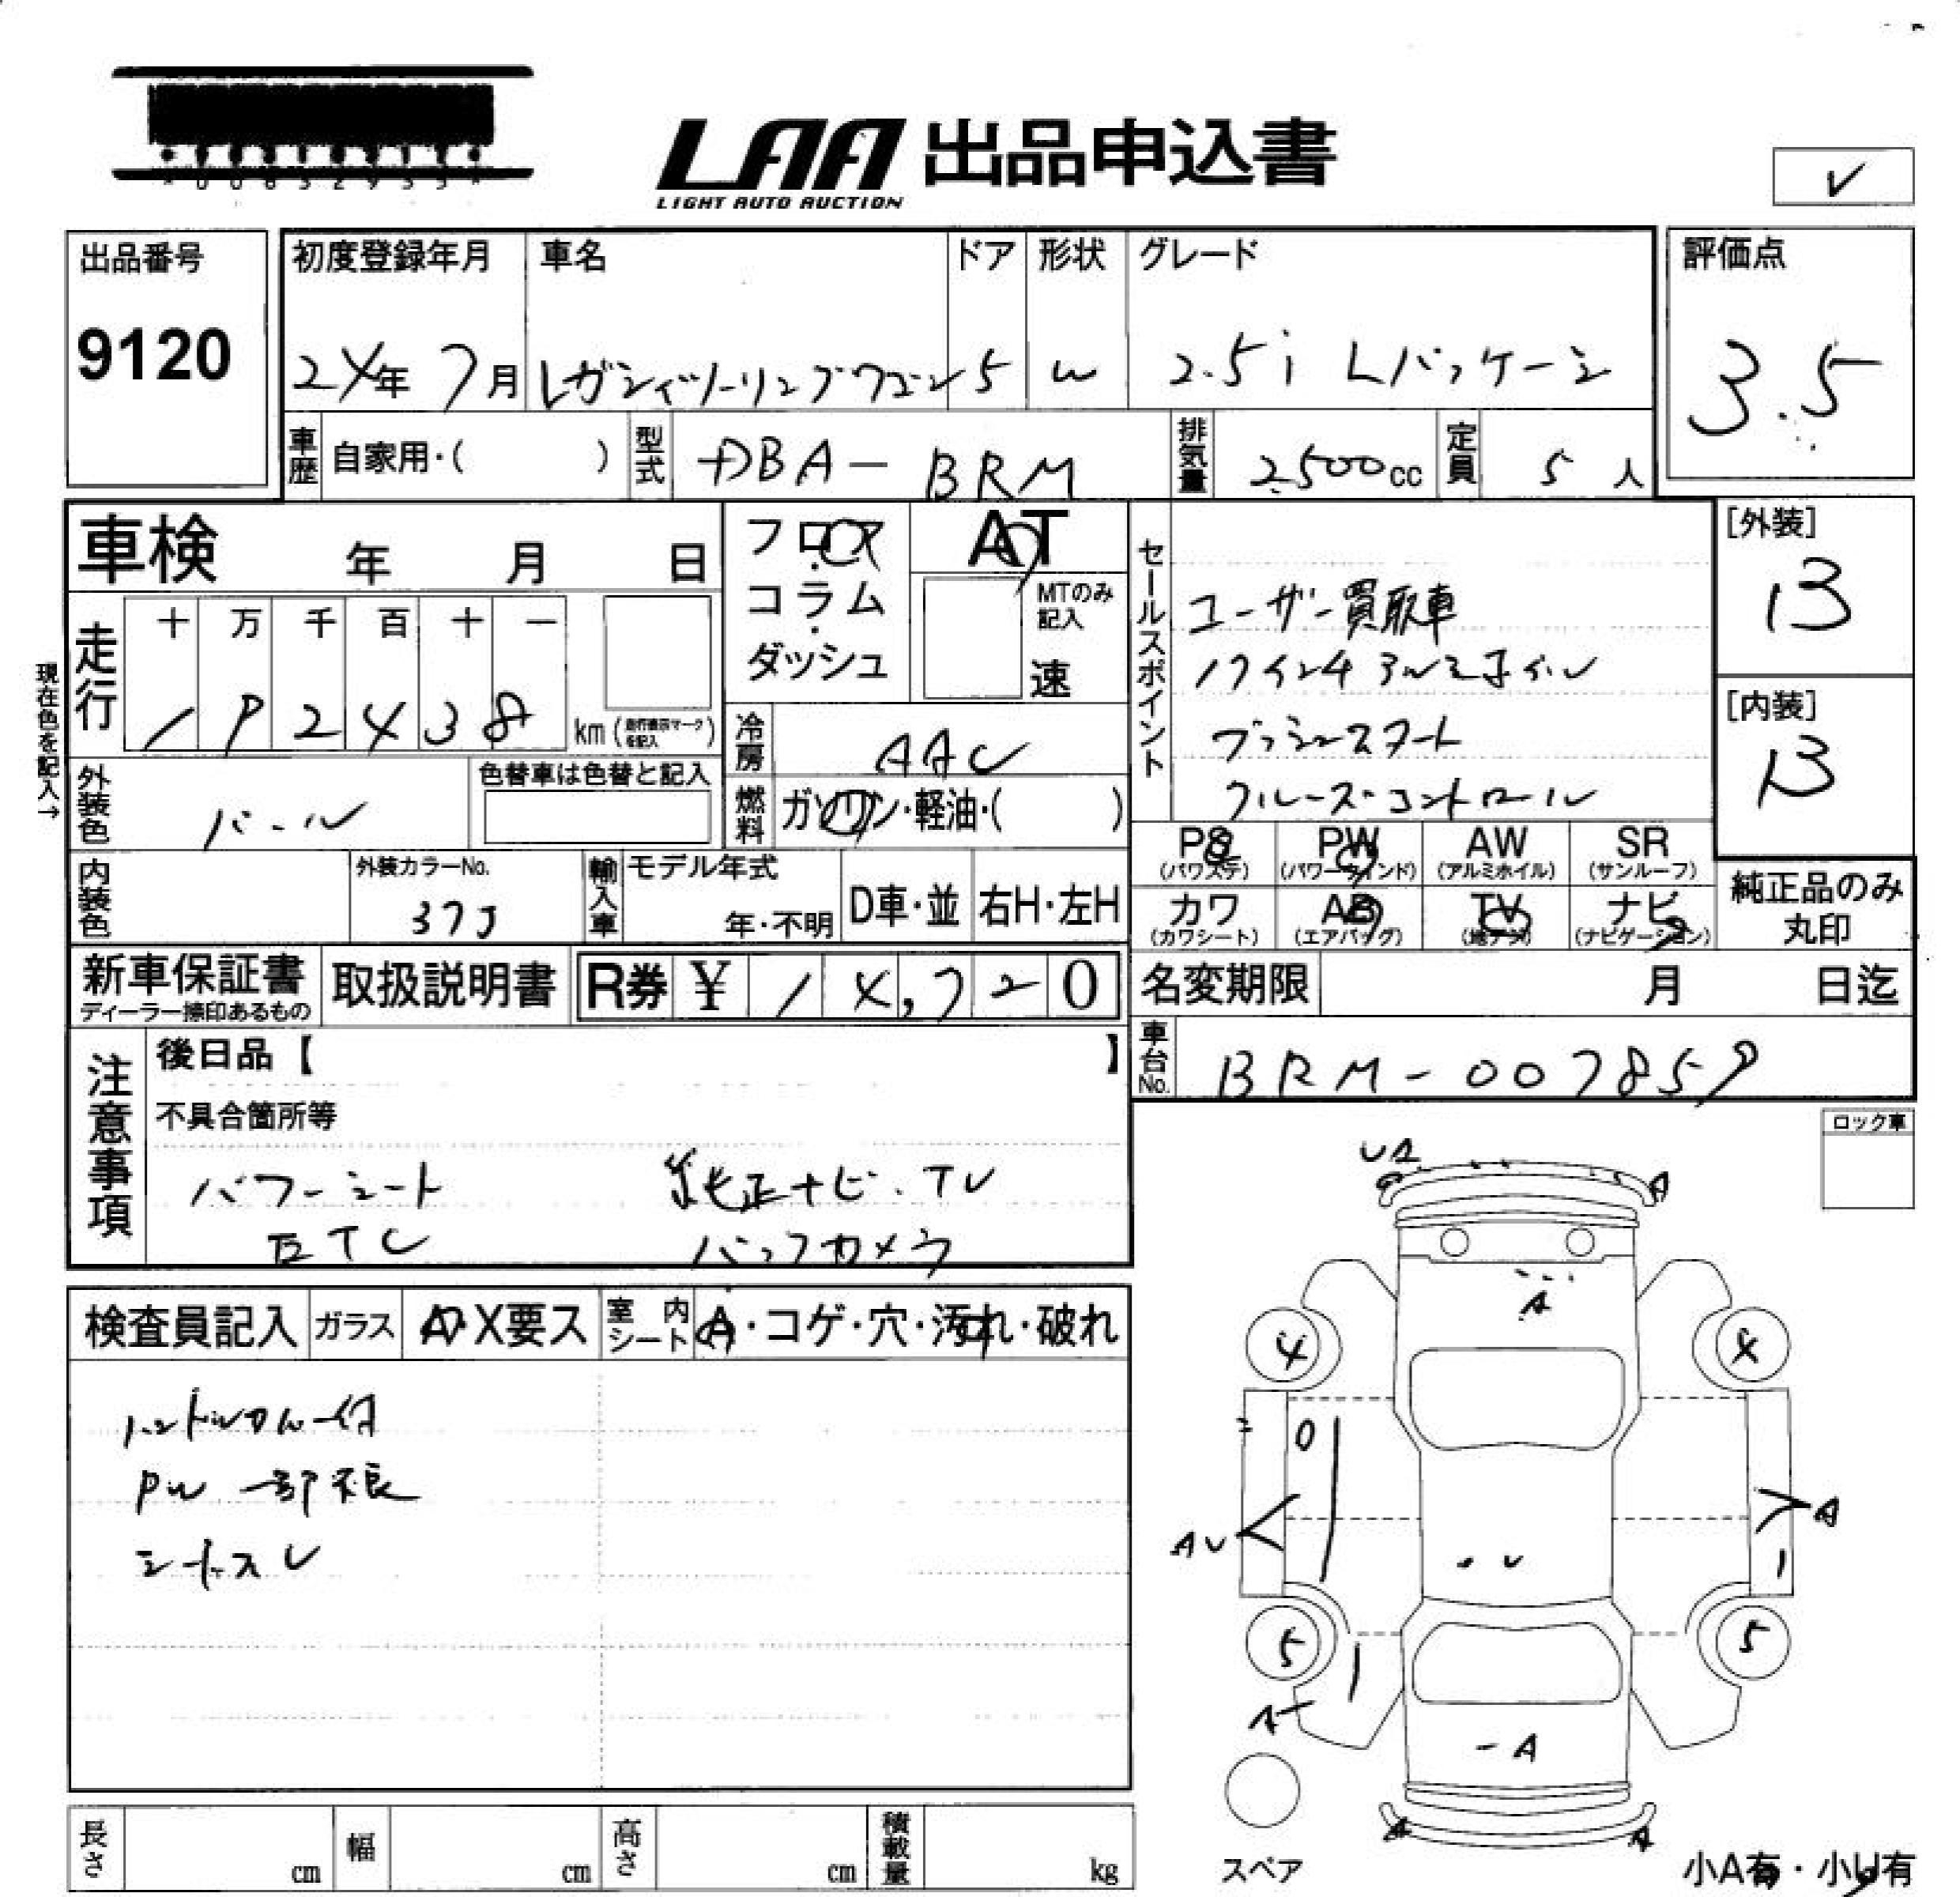 LAA 出品申込書
LIGHT AUTO AUCTION
出品番号
9120
初度登録年月
24年 7月
車名
レガシィツーリングワゴン
ドア
5
形状
W
グレード
2.5i Lパッケージ
評価点
3.5
車歴
自家用・( )
型式
DBA-BRM
排気量
2500cc
定員
5 人
車検 年 月 日
フロア・コラム・ダッシュ
AT
MTのみ記入
速
セールスポイント
ユーザー買取車
17インチアルミホイル
プッシュスタート
クルーズコントロール
[外装]
B
[内装]
B
現在色を記入→
走行
十 万 千 百 十 一
192438 km
冷房
AAC
外装色
パール
色替車は色替と記入
燃料
ガソリン・軽油・( )
内装色
外装カラーNo.
37J
輸入車
モデル年式
年・不明
D車・並
右H・左H
PS
(パワステ)
PW
(パワーウインド)
AW
(アルミホイル)
SR
(サンルーフ)
カワ
(カワシート)
AB
(エアバッグ)
TV
(地デジ)
ナビ
(ナビゲーション)
純正品のみ
丸印
新車保証書
ディーラー捺印あるもの
取扱説明書
R券 ¥ 14,720
名変期限 月 日迄
車台No.
BRM-007859
注意事項
後日品【 】
不具合箇所等
パワーシート 純正ナビ・TV
ETC バックカメラ
ロック車
検査員記入
ガラス
A・X要ス
室内シート
A・コゲ・穴・汚れ・破れ
PW 一部不良
シートスレ
UA
A
A
4
4
0
AU
A
1
U
5
5
A
-A
A
A
スペア
長さ cm
幅 cm
高さ cm
積載量 kg
小A有・小U有